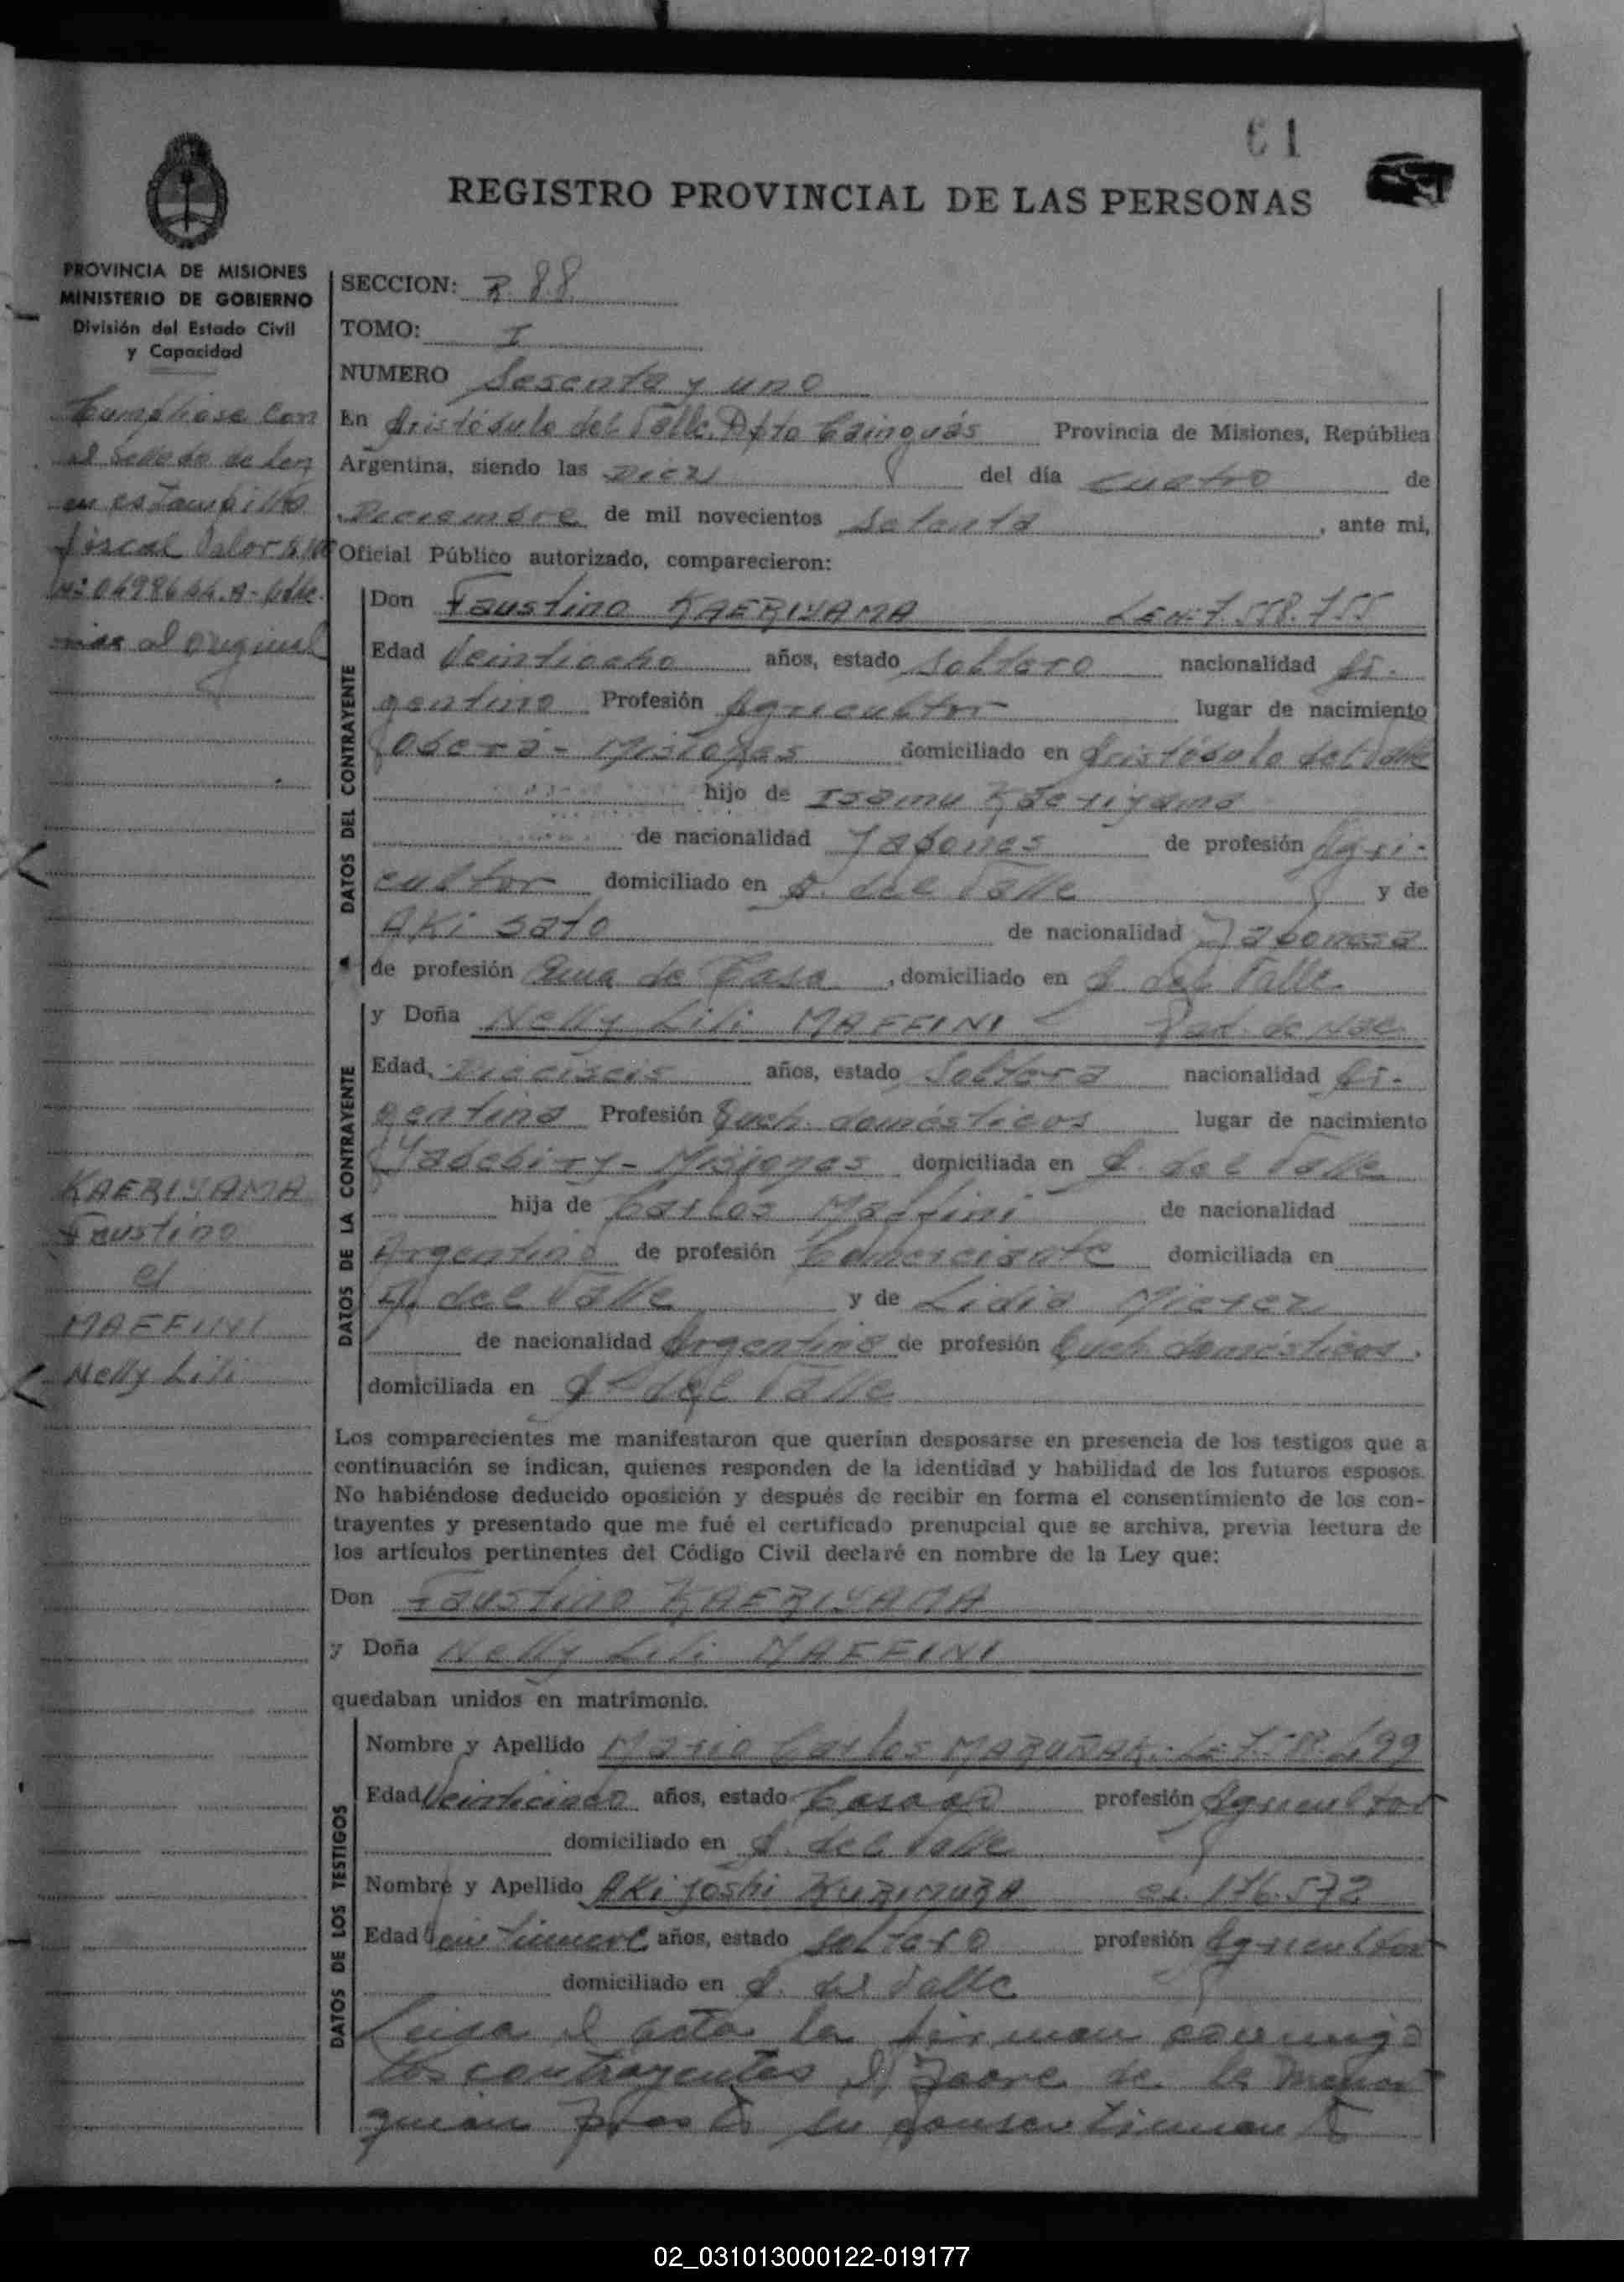 61
REGISTRO PROVINCIAL DE LAS PERSONAS
PROVINCIA DE MISIONES
MINISTERIO DE GOBIERNO
División del Estado Civil
y Capacidad
SECCION: R. 88.
TOMO: I
NUMERO Sesenta y uno
En Aristóbulo del Valle, Dpto Cainguás Provincia de Misiones, República
Argentina, siendo las Diez del día cuatro de
Diciembre de mil novecientos Setenta, ante mi,
Oficial Público autorizado, comparecieron:
Cumpliose con
el Sellado de Ley
en estampilla
fiscal Valor
Nº 0698644.A-
al original
KAERIYAMA
Faustino
MAFFINI
Nelly Lili
DATOS DEL CONTRAYENTE
Don Faustino KAERIYAMA L.E Nº 7.558.755
Edad Veintiocho años, estado Soltero nacionalidad Ar-
gentino Profesión Agricultor lugar de nacimiento
Oberá - Misiones domiciliado en Aristóbulo del Valle
hijo de Isamu Kaeriyama
de nacionalidad Japonés de profesión Agri-
cultor domiciliado en A. del Valle y de
AKi Sato de nacionalidad Japonesa
de profesión Ama de Casa, domiciliado en A. del Valle
DATOS DE LA CONTRAYENTE
y Doña Nelly Lili MAFFINI Part. de Nac
Edad Dieciseis años, estado Soltera nacionalidad Ar-
gentina Profesión Queh. domésticos lugar de nacimiento
Yabebiry - Misiones domiciliada en A. del Valle
hija de Carlos Maffini de nacionalidad
Argentino de profesión Comerciante domiciliada en
A. del Valle y de Lidia Mierez
de nacionalidad Argentina de profesión Queh domésticos.
domiciliada en A. del Valle
Los comparecientes me manifestaron que querían desposarse en presencia de los testigos que a
continuación se indican, quienes responden de la identidad y habilidad de los futuros esposos.
No habiéndose deducido oposición y después de recibir en forma el consentimiento de los con-
trayentes y presentado que me fué el certificado prenupcial que se archiva, previa lectura de
los artículos pertinentes del Código Civil declaré en nombre de la Ley que:
Don Faustino KAERIYAMA
y Doña Nelly Lili MAFFINI
quedaban unidos en matrimonio.
DATOS DE LOS TESTIGOS
Nombre y Apellido Mario Carlos
Edad Veinticinco años, estado Casado profesión Agricultor
domiciliado en A. del Valle
Nombre y Apellido AKi Joshi KURIMURA 176.572
Edad Veintinueve años, estado Soltero profesión Agricultor
domiciliado en A. del Valle
Leida el acta la firman conmigo
los contrayentes el Padre de la Menor
quien presta su consentimiento
02_031013000122-019177